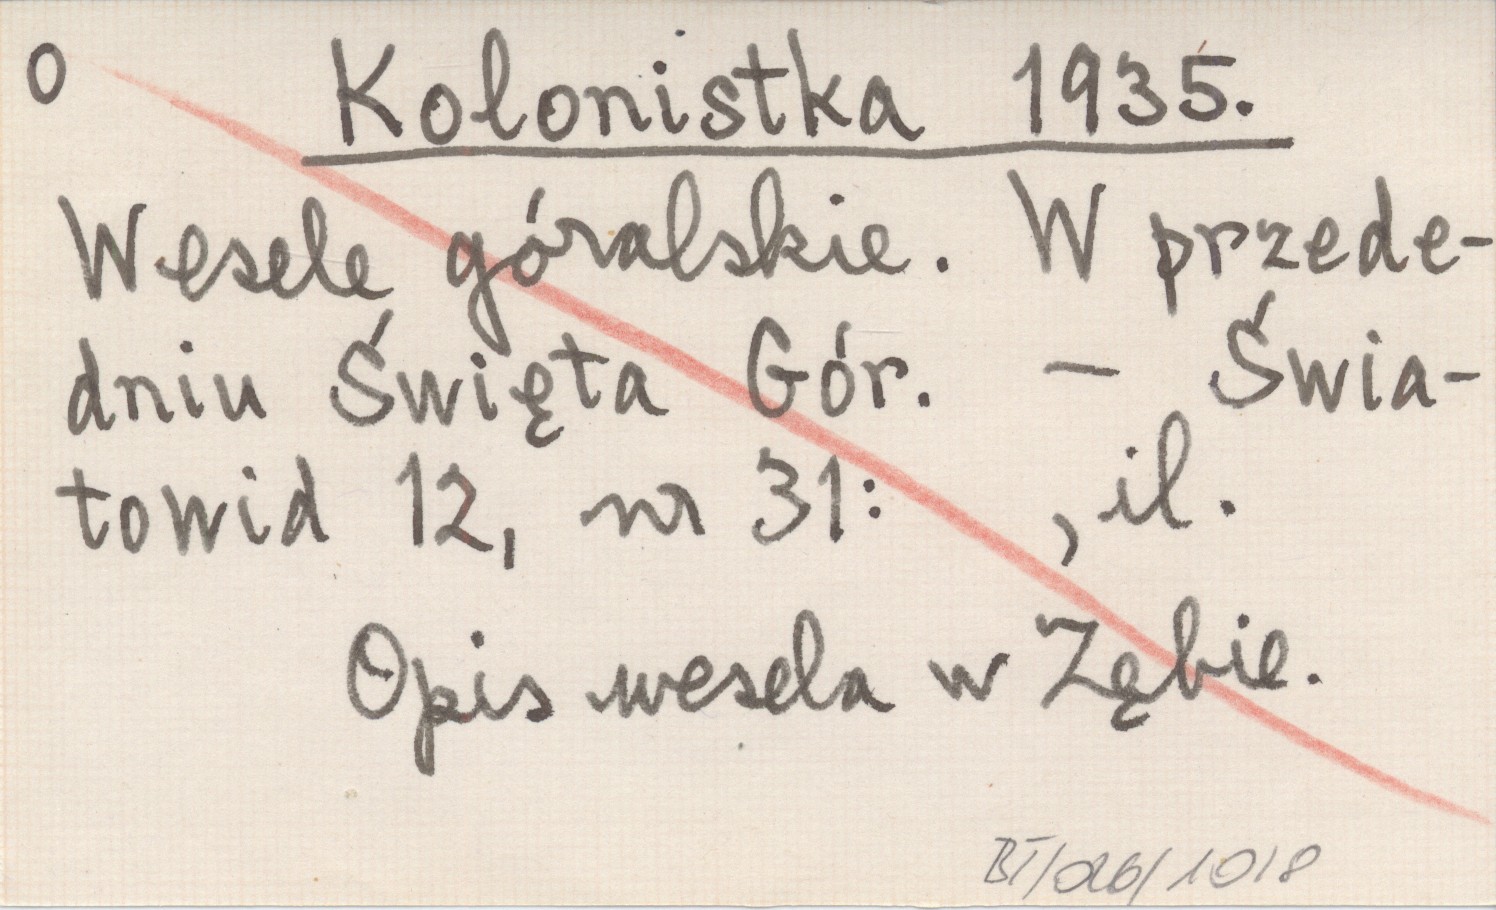 O Kolonistka 1935.
Wesele góralskie. W przede-
dniu Święta Gór. — Świa-
towid 12, nr 31: , il.
Opis wesela w Zębie.
BT/026/1018